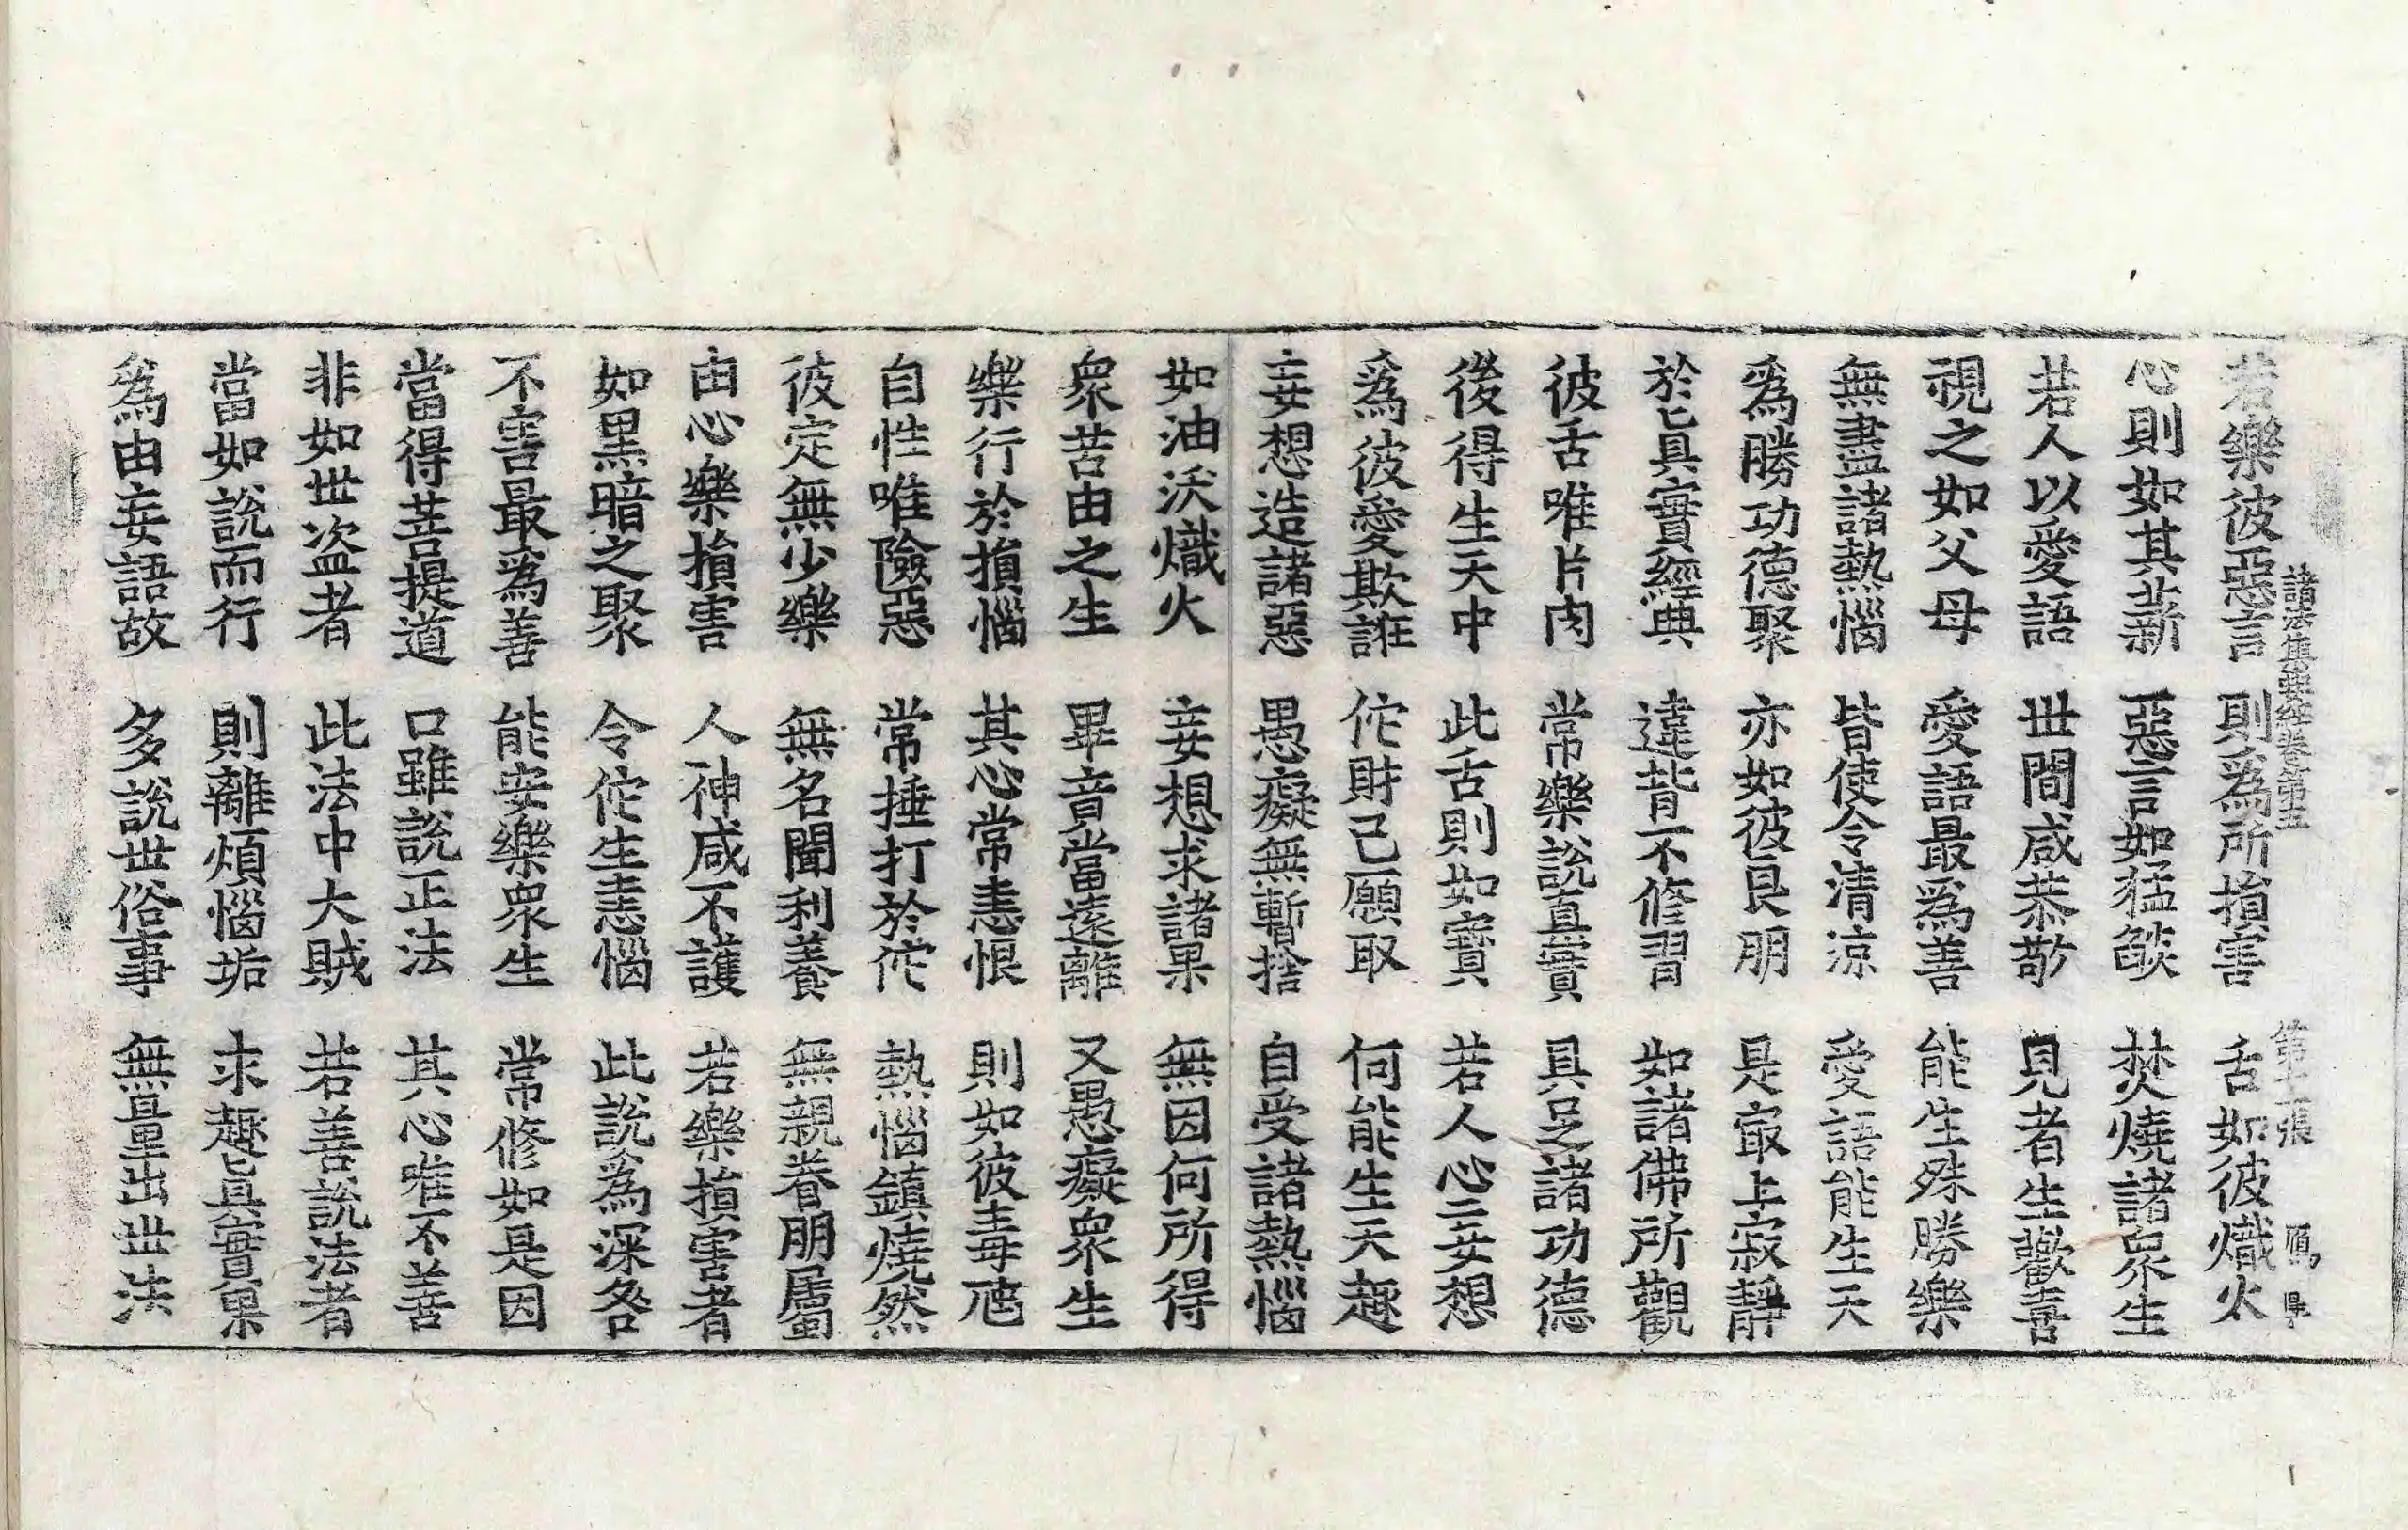 諸法集要經卷第五 第十一張 履
若樂彼惡言 則爲所損害 舌如彼熾火
心則如其薪 惡言如猛燄 焚燒諸衆生
若人以愛語 世間咸恭敬 見者生歡喜
視之如父母 愛語最爲善 能生殊勝樂
無盡諸熱惱 皆使令清涼 愛語能生天
爲勝功德聚 亦如彼良朋 是㝡上寂靜
於此眞實經典 違背不修習 如諸佛所觀
彼舌唯片肉 常樂說眞實 具足諸功德
後得生天中 此舌則如寶 若人心二妄想
爲彼愛欺誑 佗財己願取 何能生天趣
妄想造諸惡 愚癡無暫捨 自受諸熱惱
如油沃熾火 妄想求諸果 無因何所得
衆苦由之生 畢竟當遠離 又愚癡衆生
樂行於損惱 其心常恚恨 則如彼毒虺
自性唯險惡 常捶打於佗 熱惱鎭燒然
彼定無少樂 無名聞利養 無親眷朋屬
由心樂損害 人神咸不護 若樂損害者
如黑暗之聚 令佗生恚惱 此說爲深咎
不害最爲善 能安樂衆生 常修如是因
當得菩提道 口雖說正法 其心唯不善
非如世盜者 此法中大賊 若善說法者
當如說而行 則離煩惱垢 求趣眞實果
爲由妄語故 多說世俗事 無量出世法